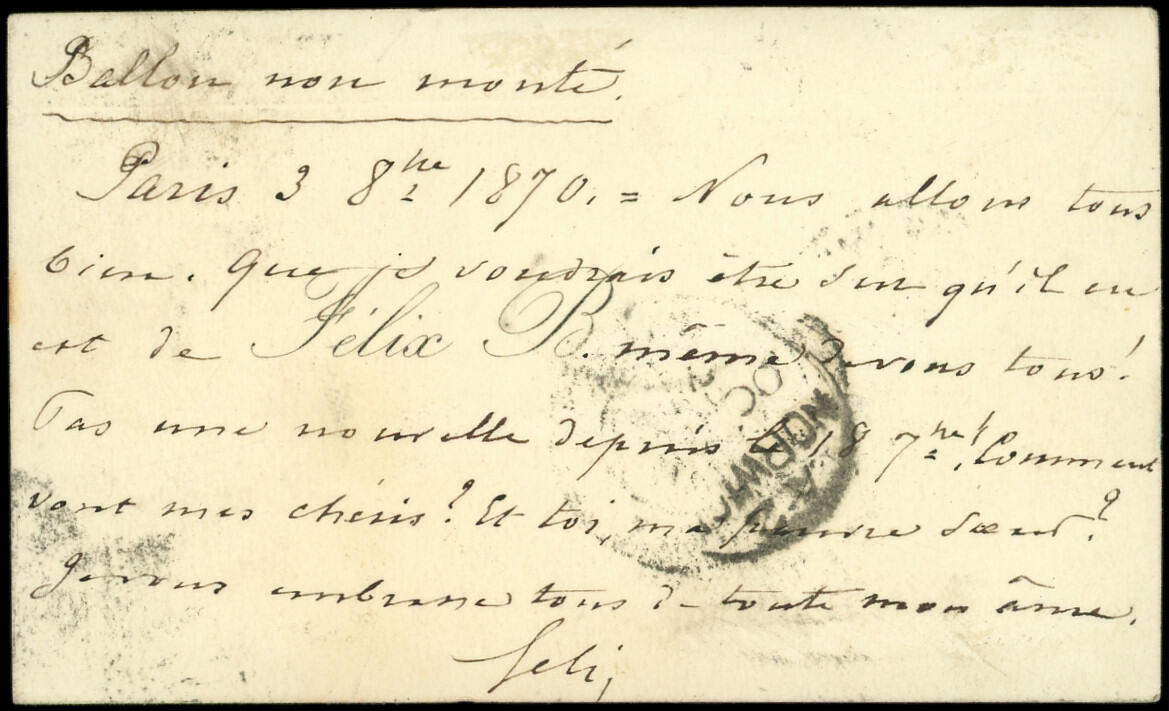 Ballon non monté.
Paris 3 8bre 1870. = Nous allons tous
bien. Que je voudrais être sur qu'il en
est de même de vous tous!
Félix B.
Pas une nouvelle depuis le 18 7bre! Comment
vont mes chéris? Et toi, ma pauvre Sœur?
Je vous embrasse tous de toute mon âme.
Feli
NORWICH
OC